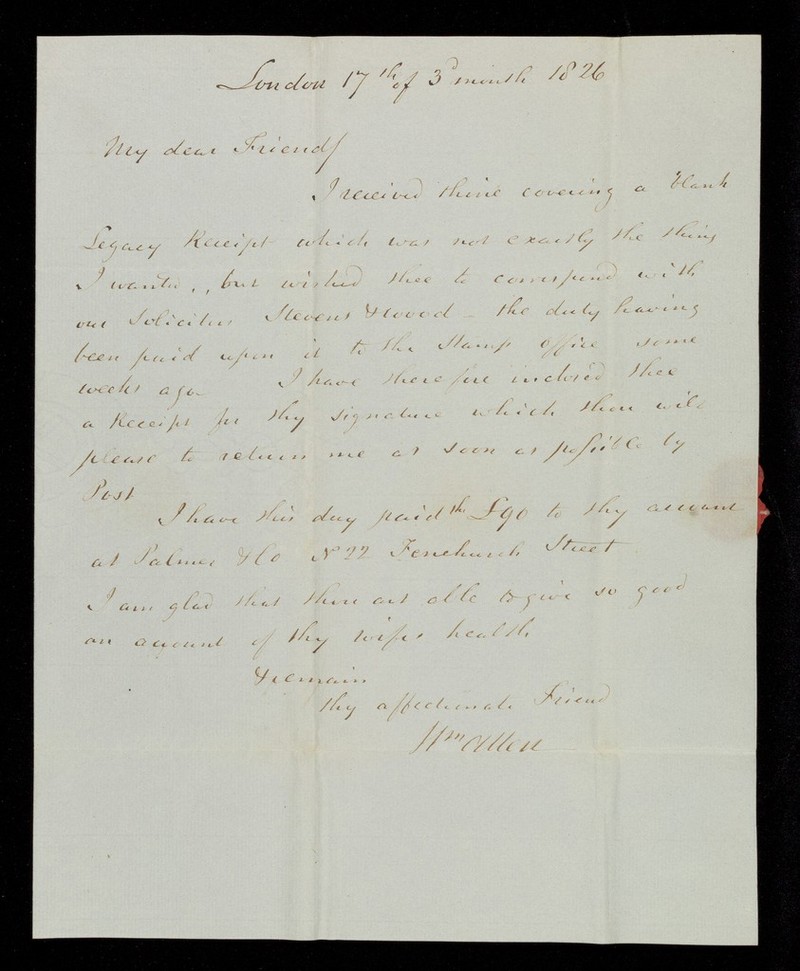 London 17th of 3d month 1826
My dear Friend/
I received thine covering a blank
Legacy Receipt which was not exactly the thing
I wanted, but wished thee to correspond with
our Solicitors Stevens & Wood – the duty having
been paid upon it to the Stamp Office some
weeks ago I have therefore inclosed thee
a Receipt for thy signature which thou wilt
please to return me as soon as possible by
Post
I have this day paid the £90 to thy account
at Palmer & Co No 22 Fenchurch Street
I am glad that thou art able to give so good
an account of thy wifes health
& remain
thy affectionate Friend
Wm Allen